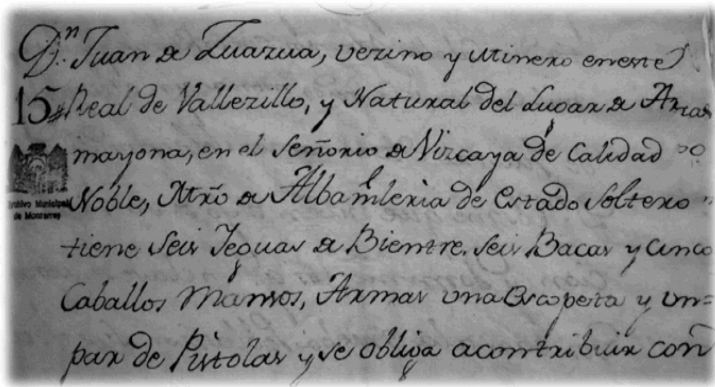 Dn. Juan de Zuazua, vezino y Minero eneste
15 Real de Vallezillo, y Natural del Lugar de Arra
mayona, en el Señorio de Vizcaya de Calidad
Noble, Mtrō de Albamleria de Estado Soltero
tiene Seis Yeguas de Bientre. Seis Bacas y Cinco
Caballos Mansos, Armas una Escopeta y un=
par de Pistolas y se obliga acontribuir con
Archivo Municipal
de Monterrey